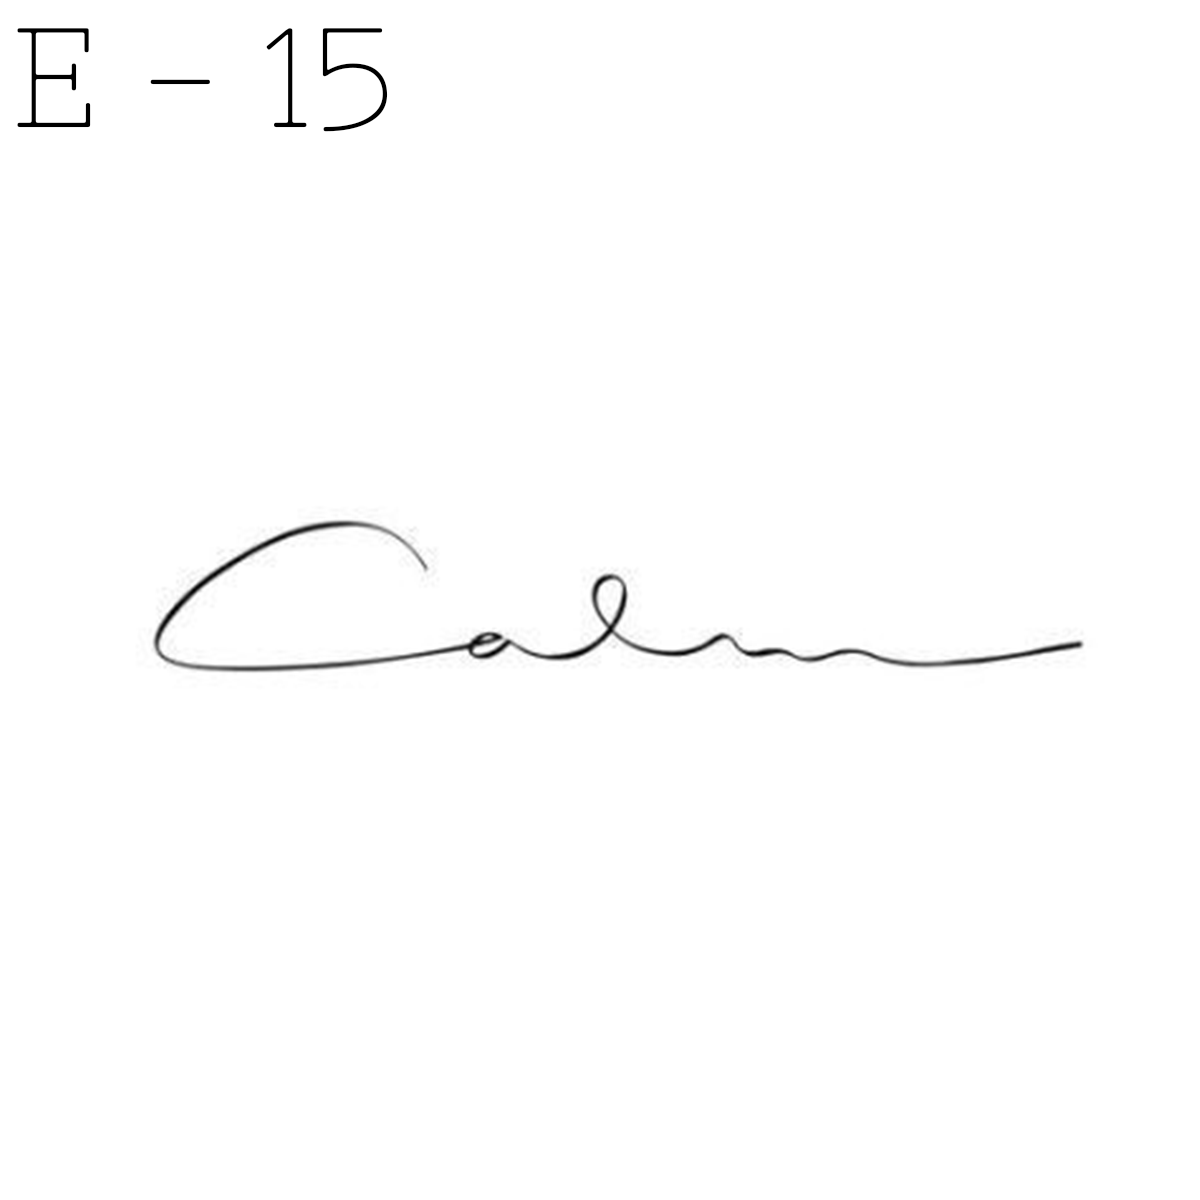 E - 15
Calm